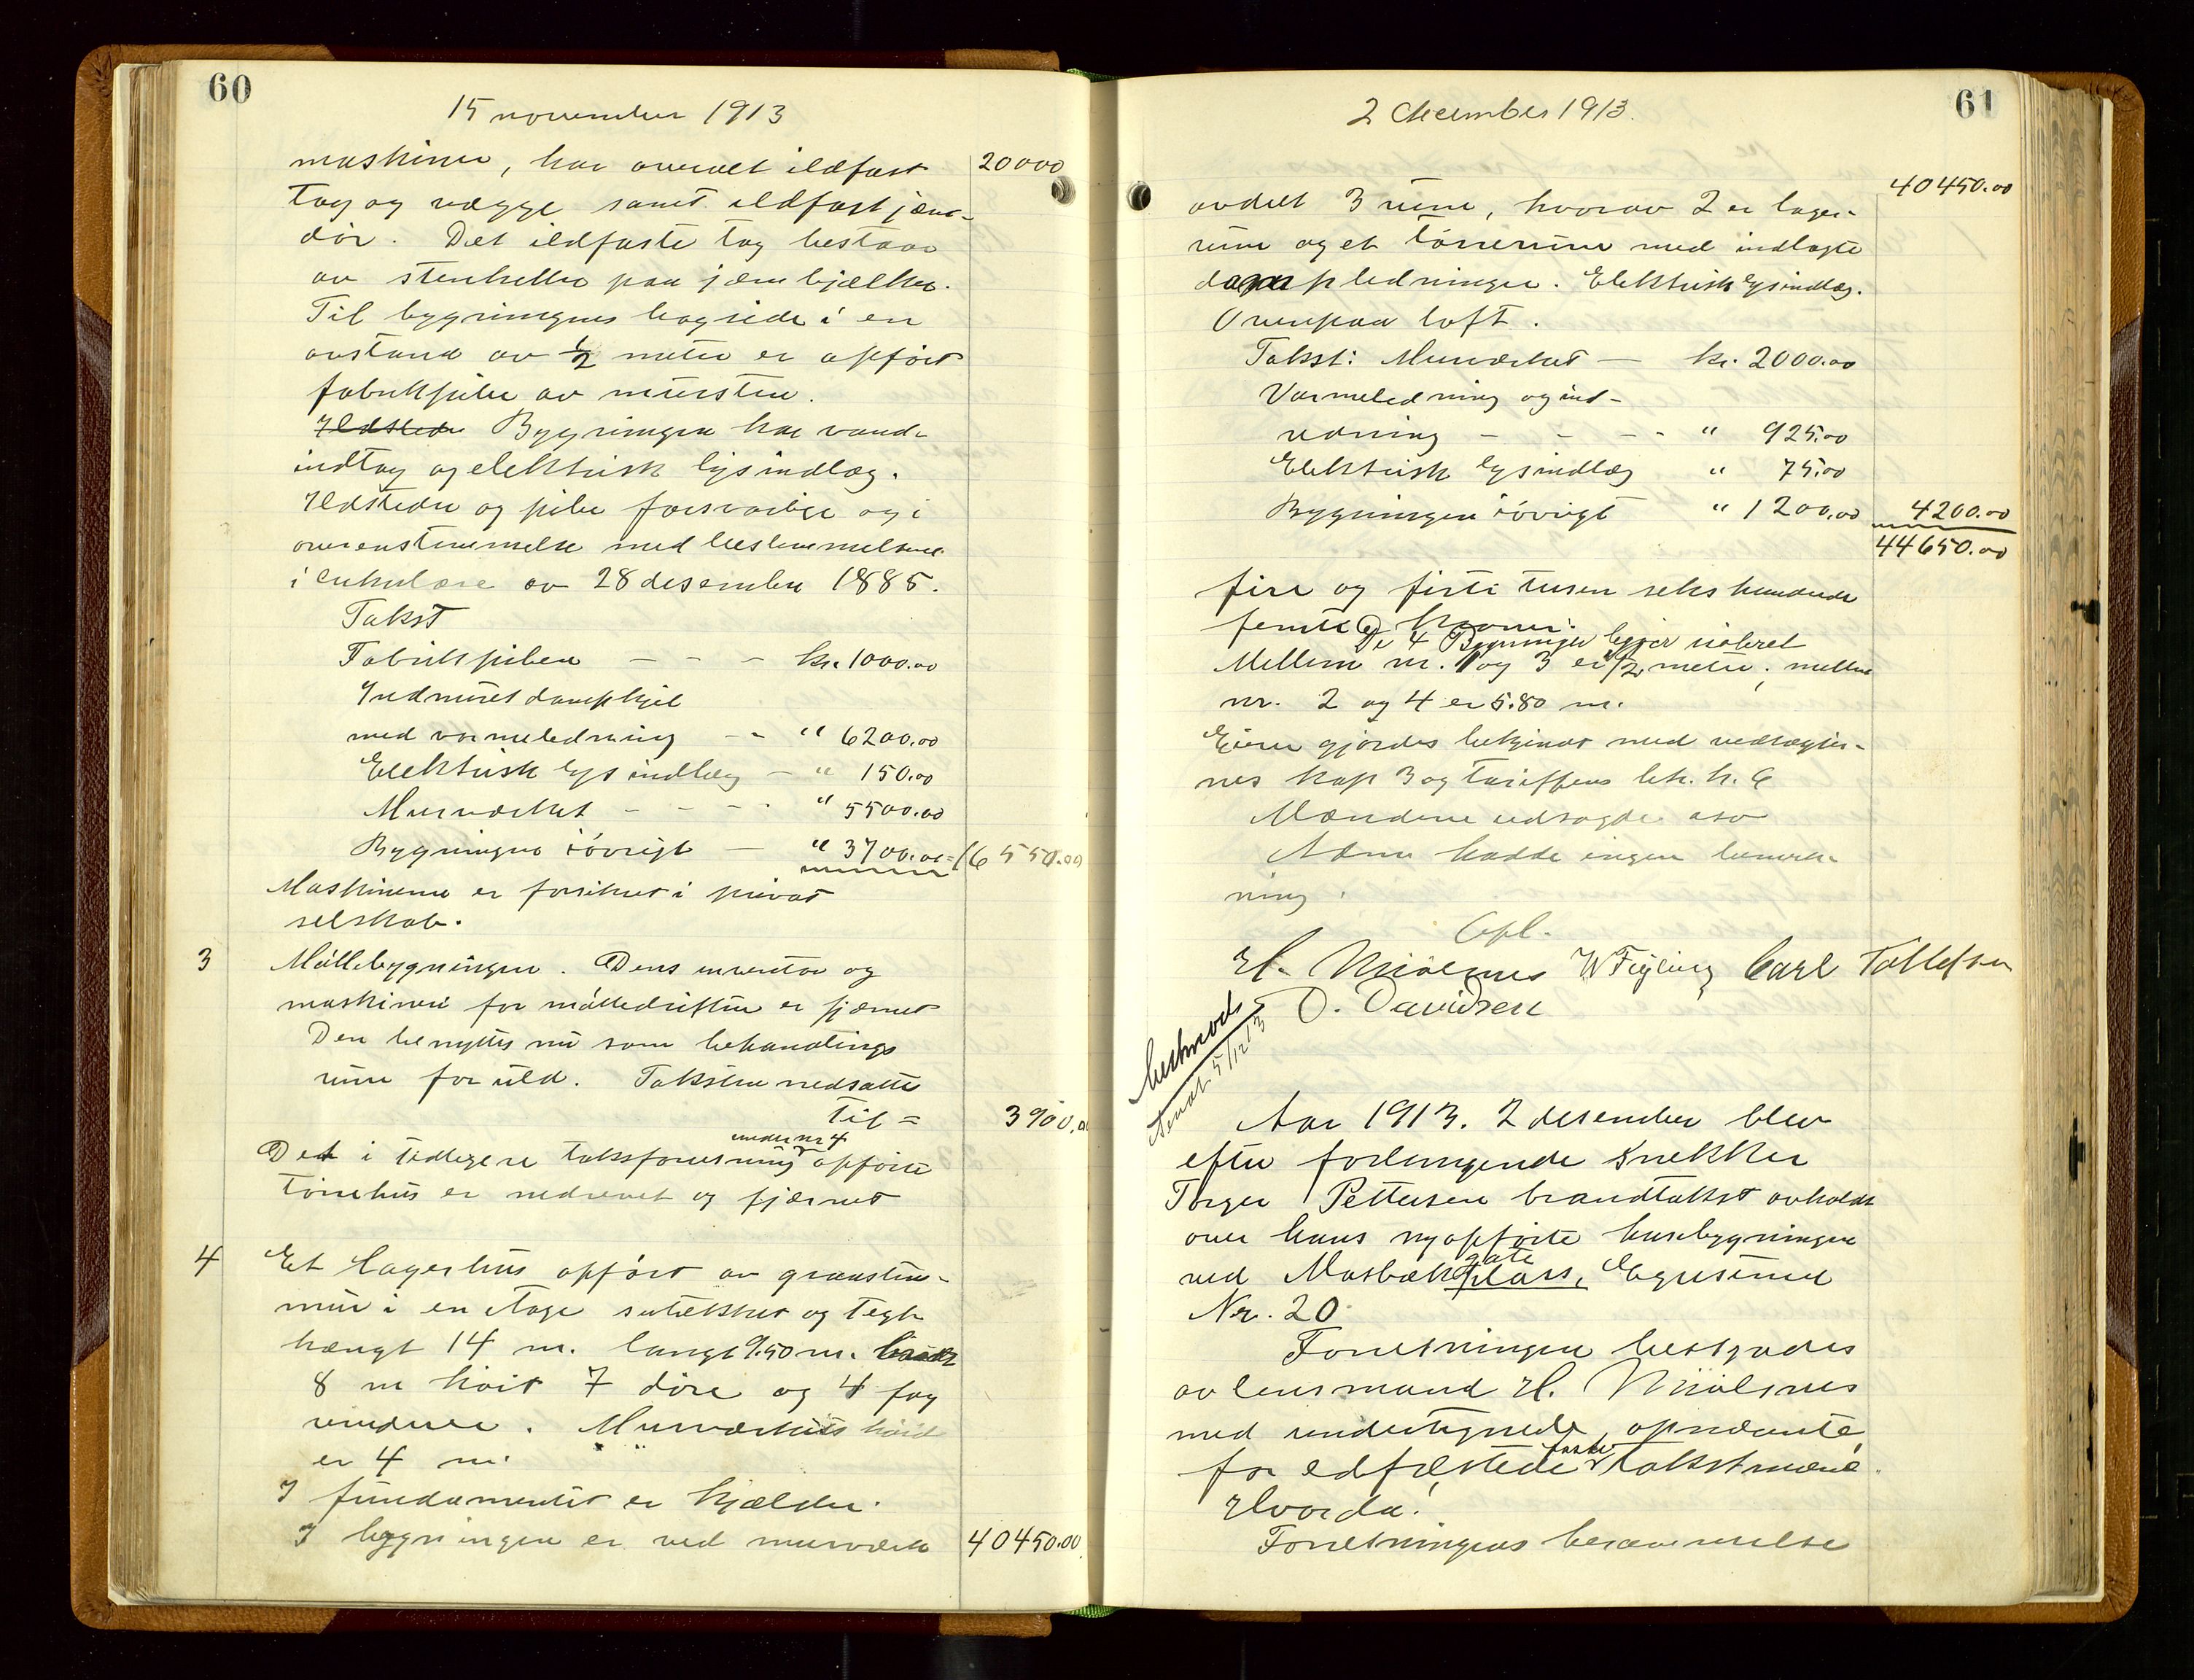 60
15 november 1913
maskiner, har overalt ildfast
20000
tag og vægge samt ildfast jærn-
dør. Det ildfaste tag bestaar
av stenheller paa jærnbjælker.
Til bygningens bagside i en
avstand av 1/2 meter er opført
fabrikpibe av mursten.
Ildsteder Bygningen har vand-
indtag og elektrisk lysindlæg.
Ildsteder og piber forsvarlige og i
overenstemmelse med bestemmelserne
i cirkulære av 28 desember 1885.
Takst
Fabrikpiben - - - kr. 1000.00
Indmuret dampkjel
med varmeledning - - " 6200.00
Elektrisk lysindlæg - " 150.00
Murverket - - - - " 5500.00
Bygningen iøvrigt - " 3700.00 = 16550.00
Maskinerne er forsikret i privat
selskab.
3 Møllebygningen. Dens inventar og
maskineri for mølledriften er fjærnet
Den benyttes nu som behandlings
rum for uld. Taksten nedsattes
til = 3900.00
under nr 4
Det i tidligere taksforretning opførte
tørrehus er nedrevet og fjærnet
4 Et lagerhus opført av graasten-
mur i en etage sutækket og tegl-
hængt 14 m. langt 9.50 m. bredt
8 m høit 7 døre og 4 fag
vinduer. Murverkets høide
er 4 m.
I fundamentet er kjælder.
I bygningen er ved murverk
40450.00
61
2 december 1913.
40450.00
avdelt 3 rum, hvorav 2 er lager-
rum og et tørrerum med indlagte
dampledninger. Elektrisk lysindlæg.
Ovenpaa loft.
Takst: Murverket - kr. 2000.00
Varmeledning og ind-
redning - - - - " 925.00
Elektrisk lysindlæg " 75.00
Bygningen iøvrigt " 1200.00 4200.00
44650.00
fire og firti tusen seks hundrede
femti kroner.
De 4 Bygninger ligger isoleret
Mellem nr. 1 og 3 er 1/2 meter, mellem
nr. 2 og 4 er 5.80 m.
Eieren gjordes bekjendt med vedtægter-
nes kap 3 og tariffens litr. h. 6
Mændene
Næm hadde ingen bemerk-
ning.
Opl.
H. Miølsnes W Fugleung Carl Tollefsen
O. Davidsen
Utskrevet
Sendt 5/12 13
Aar 1913. 2 desember blev
efter forlangende snekker
Torger Pettersen brandtakst avholdt
over hans nyopførte husebygninger
gate
ved Mosbækplass, Egersund
Nr. 20
Forretningen bestyrdes
av lensmand H. Miølsnes
med undertegnede, opnævnte,
faste
for edfæstede takstmænd.
Hvorda!
Forretningens berammelse